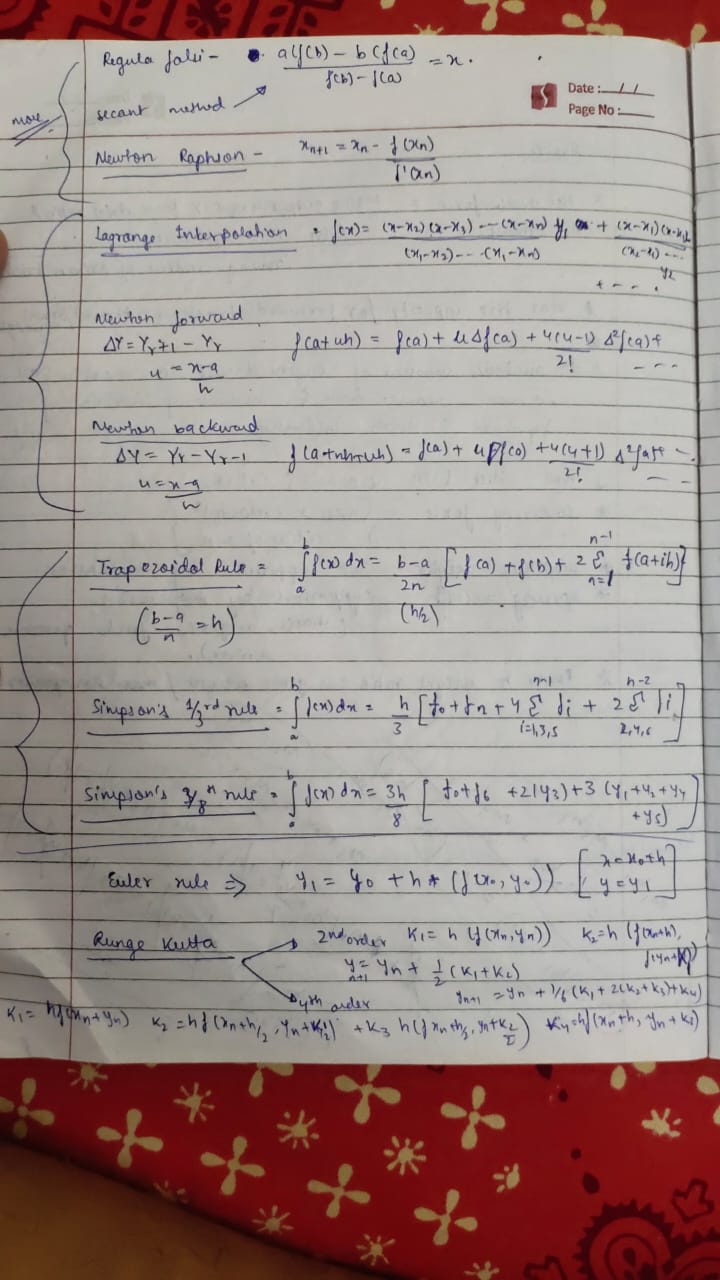 Regula falsi - a(f(b) - b(f(a) / f(b) - f(a) = x.
Date : / /
Page No :
more
secant method
Newton Raphson - xn+1 = xn - f(xn) / f'(xn)
Lagrange Interpolation f(x) = (x-x2)(x-x3) --- (x-xn) y1 / (x1-x2) --- (x1-xn) + (x-x1)(x-x3) / (x2-x1) --- y2
+ - - .
Newton forward
ΔY = Yr+1 - Yr f(a+uh) = f(a) + uΔf(a) + u(u-1) / 2! Δ²f(a) + - - -
u = x-a / h
Newton backward
ΔY = Yr - Yr-1 f(a+nh+uh) = f(a) + u∇f(a) + u(u+1) / 2! Δ²f(a) + - - -
u = x-a / h
Trapezoidal Rule = ∫ₐᵇ f(x) dx = b-a / 2n [f(a) + f(b) + 2 Σ n=1 n-1 f(a+ih)]
(b-a / n = h) (h/2)
Simpson's 1/3rd rule = ∫ₐᵇ f(x) dx = h / 3 [f0 + fn + 4 Σ i=1,3,5 n-1 fi + 2 Σ 2,4,6 n-2 fi]
Simpson's 3/8th rule = ∫ₐᵇ f(x) dx = 3h / 8 [f0 + f6 + 2(y3) + 3 (y1 + y2 + y4 + y5)]
Euler rule ⇒ y1 = y0 + h * (f(x0, y0)) [x = x0 + h
y = y1]
Runge Kutta 2nd order K1 = h (f(xn, yn)) K2 = h (f(xn+h),
yn+1 = yn + 1/2 (K1 + K2)
4th order yn+1 = yn + 1/6 (K1 + 2(K2 + K3) + K4)
K1 = hf(xn + yn) K2 = hf(xn + h/2, yn + K1/2) + K3 h(f xn + h/2, yn + K2/2) K4 = hf(xn + h, yn + K3)